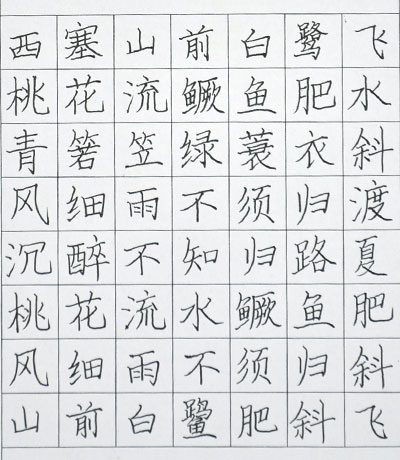 西塞山前白鹭飞
桃花流鳜鱼肥水
青箬笠绿蓑衣斜
风细雨不须归渡
沉醉不知归路夏
桃花流水鳜鱼肥
风细雨不须归斜
山前白鹭肥斜飞